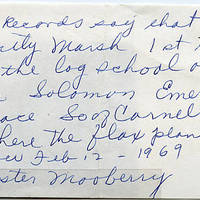 Records say that
ily Marsh 1st
the log school
Solomon Eme
ace Soo Carnel
here the flax plan
Feb 12 - 1969
ster Mooberry